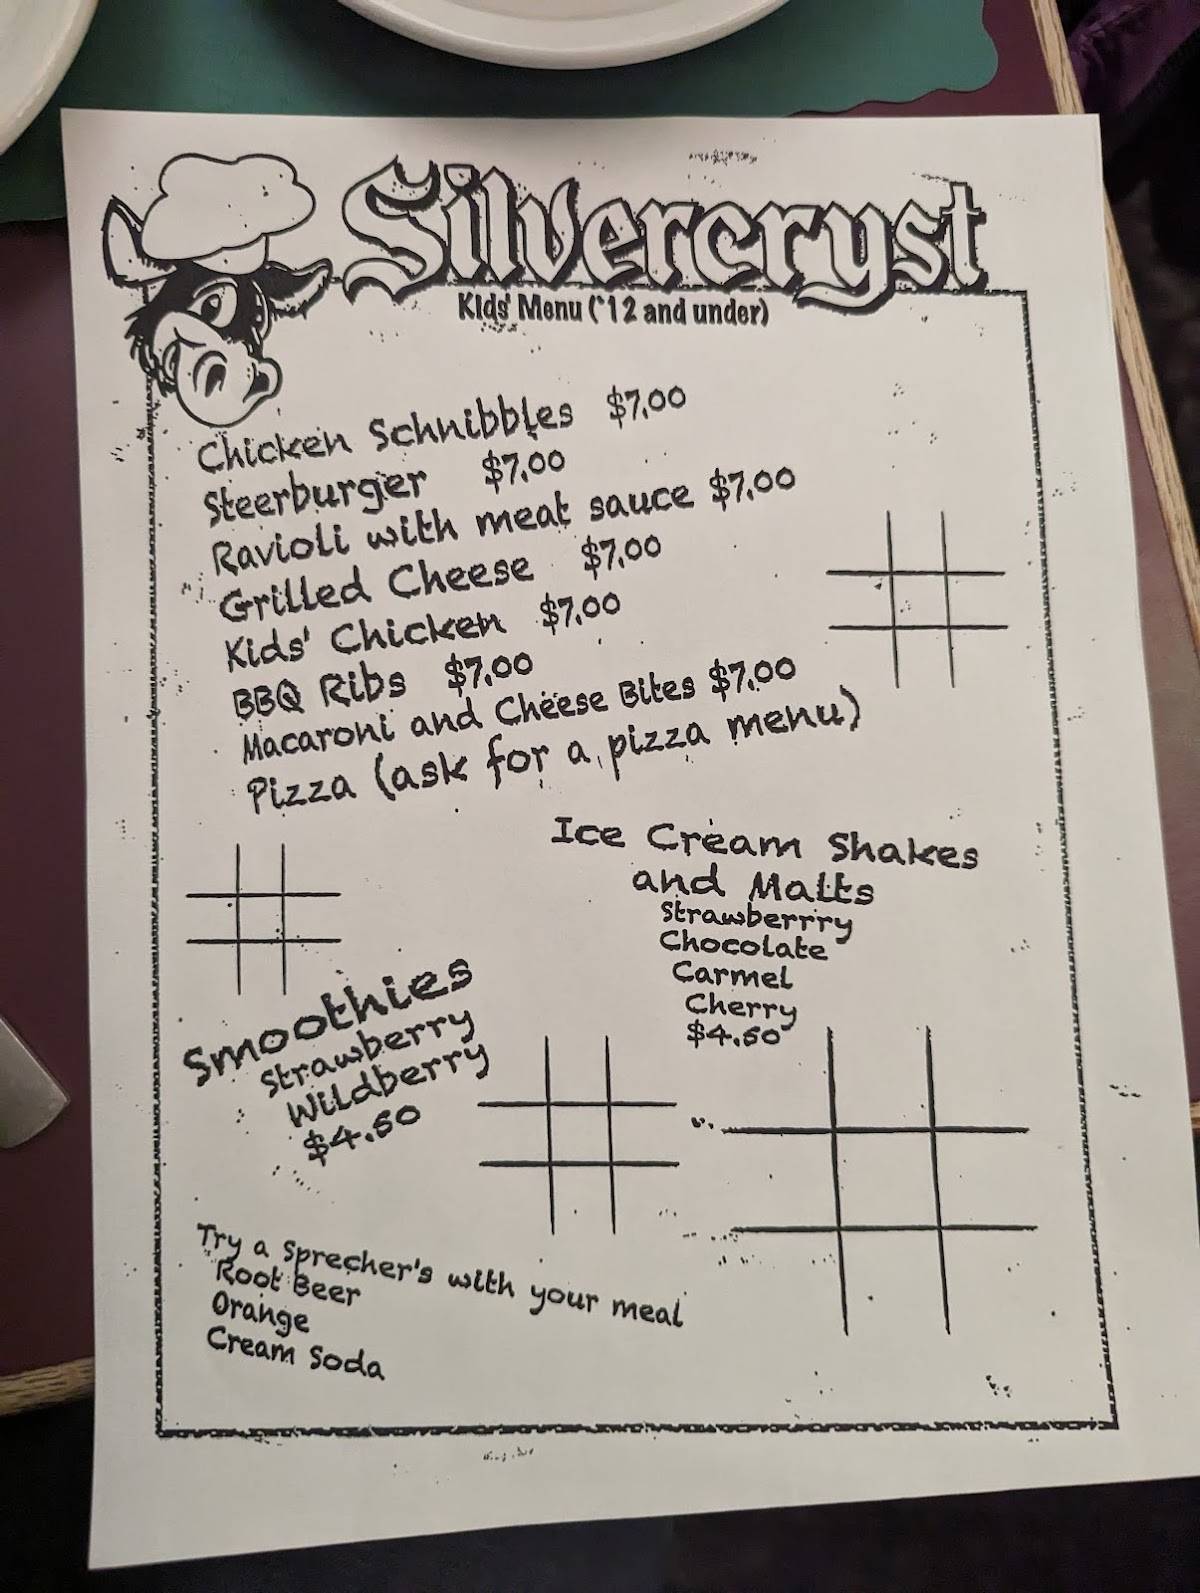 Silvercryst
Kids' Menu ('12 and under)
Chicken Schnibbles $7.00
Steerburger $7.00
Ravioli with meat sauce $7.00
Grilled Cheese $7.00
Kids' Chicken $7.00
BBQ Ribs $7.00
Macaroni and Cheese Bites $7.00
Pizza (ask for a pizza menu)
Ice Cream Shakes
and Malts
Strawberrry
Chocolate
Carmel
Cherry
$4.50
Smoothies
Strawberry
Wildberry
$4.50
Try a Sprecher's with your meal
Root Beer
Orange
Cream Soda